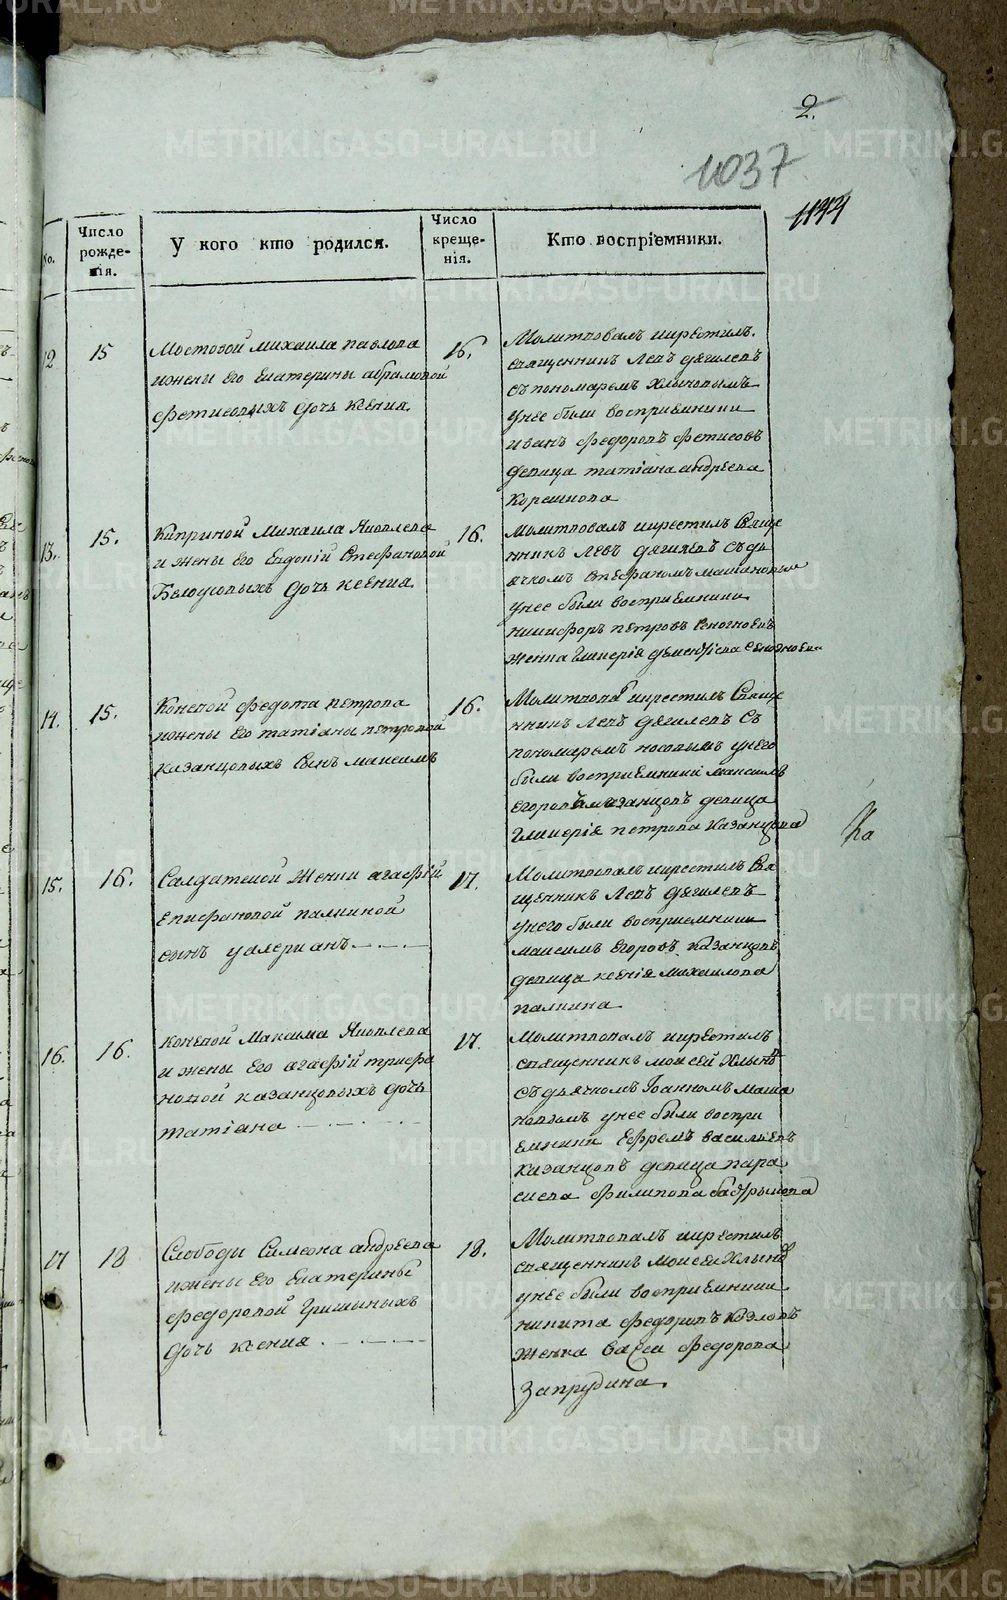 2.
1037
1144
№.
Число рожде-нія.
У кого кто родился.
Число креще-нія.
Кто воспріемники.
12
15
Мостовой михаила павлова
ижены Его Екатерины абрамовой
фетисовыхъ дочь ксения.
16.
Молитвовалъ икрестилъ.
священникъ Левъ дягилевъ
съ пономаремъ Хлыновымъ
унее были восприемники
иванъ федоровъ фетисовъ
девица татіана андреева
Корешкова
13.
15.
Киприной Михаила Яковлева
и жены Его Евдокій Стефановой
Белоусовыхъ дочь ксения
16.
Молитвовалъ икрестилъ Свяще
нникъ Левъ дягилевъ съ дь
ячкомъ стефаномъ машановым
унее были восприемники
никифоръ петровъ
женка Гликерія
14.
15.
Коневой федота петрова
ижены Его татіаны петровой
казанцовыхъ сынъ максимъ
16.
Молитвова икрестилъ Свяще
нникъ Левъ дягилевъ съ
пономаремъ носовымъ унего
были восприемники максимъ
Егоровъ казанцовъ девица
Гликерія петрова Казанцова
15.
16.
Салдатской Женки агафій
Епифановой палкиной
сынъ уалерианъ
17.
Молитвовалъ икрестилъ Свя
щенникъ Левъ дягилевъ
унего были восприемники
максимъ Егоровъ казанцовъ
девица ксенія михаилова
палкина
16.
16.
коневой Максима Яковлева
и жены Его агафій трифо
новой казанцовыхъ дочь
татіана
17.
Молитвовалъ икрестилъ
священникъ моисей Хлыновъ
съ дьячкомъ Іоанномъ Маша
новымъ унее были воспри
емники Ефремъ васильевъ
казанцовъ девица пара
скева филипова
17
18
Слободы Симеона андреева
ижены Его Екатерины
федоровой Гришиныхъ
дочь ксения
18.
Молитвовалъ икрестилъ
священникъ Моисей Хлыновъ
унее были восприемники
никита федоровъ козловъ
женка васса федорова
Запрудина.
Ка
METRIKI.GASO-URAL.RU